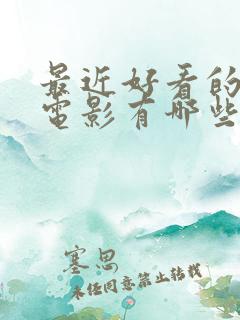 最近好看的
電影有哪些
塞思
未经同意禁止转载